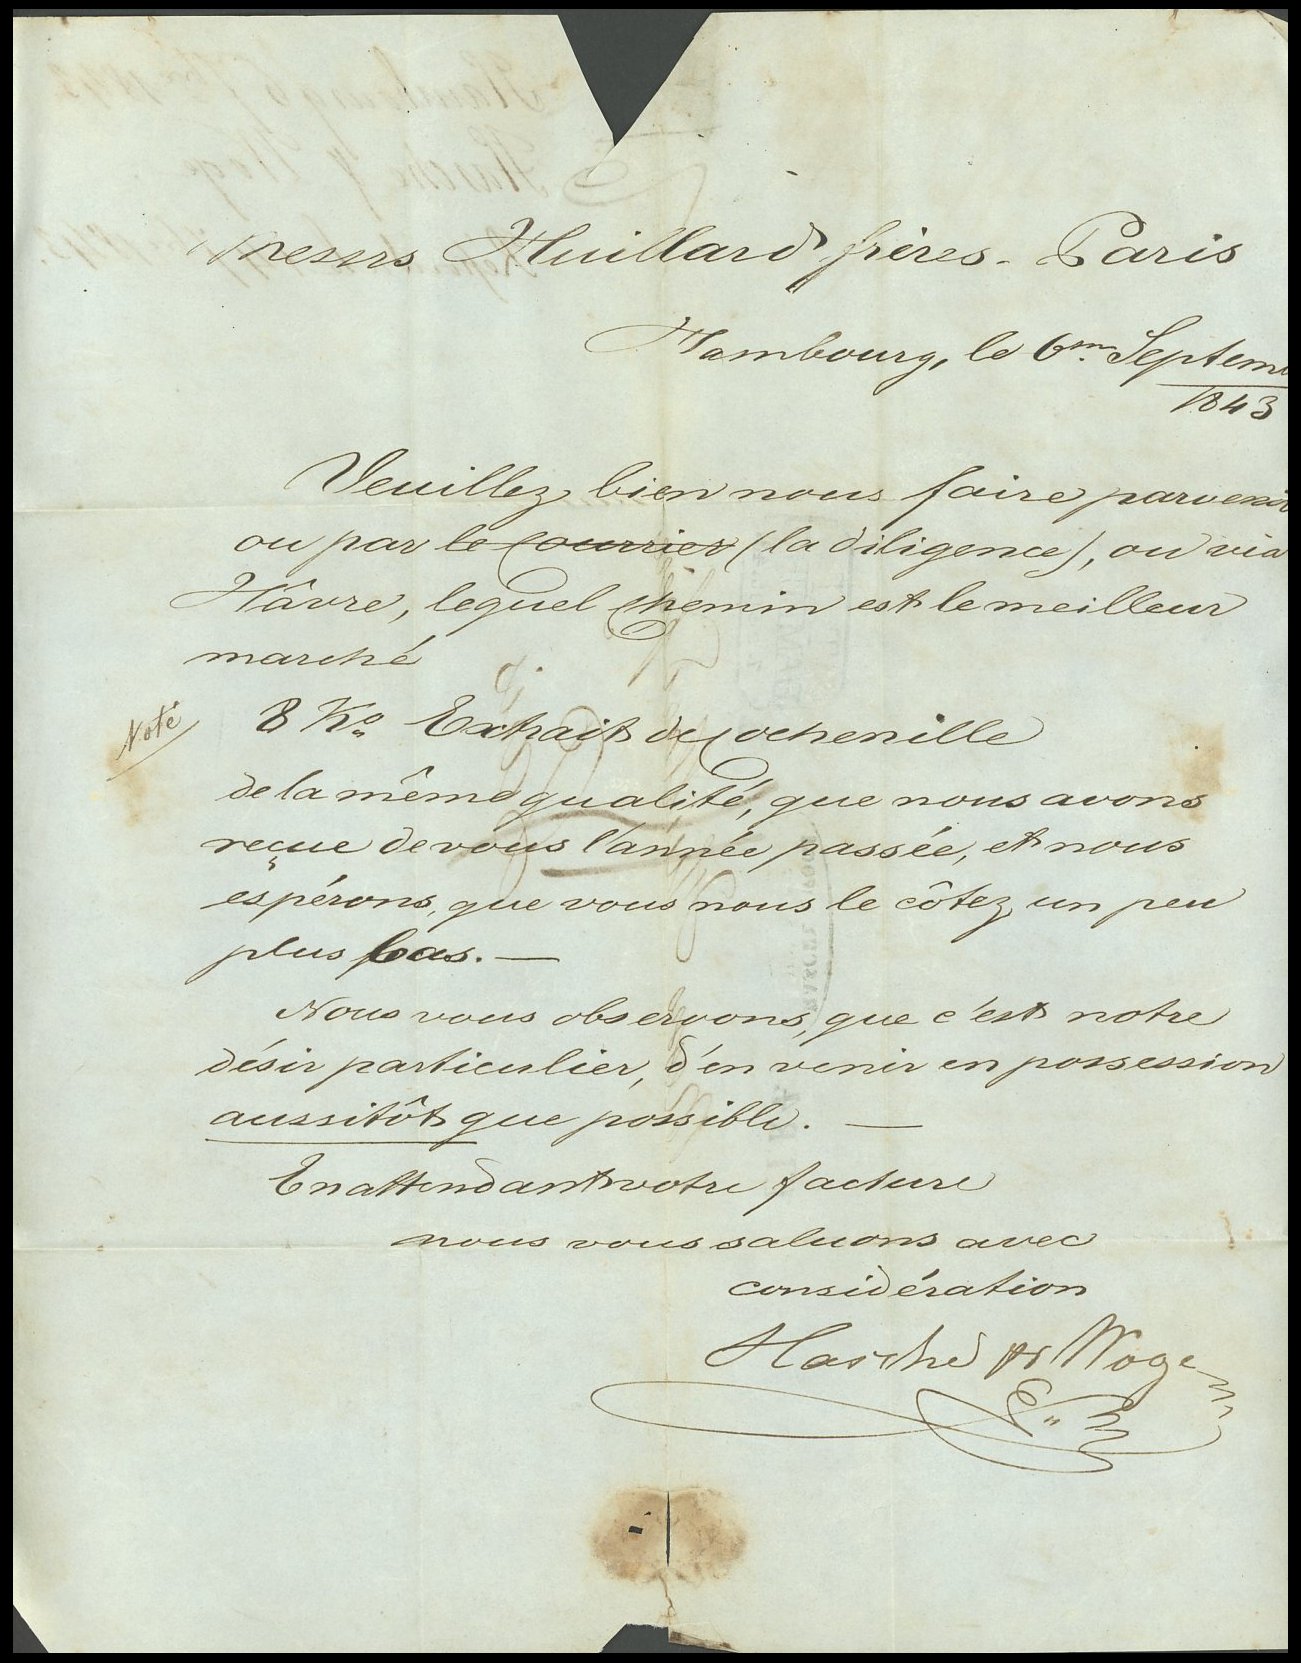 Messrs Huillard frères - Paris
Hambourg, le 6m Septem
1843
Veuillez bien nous faire parvenir
ou par le courrier (la diligence), ou via
Hâvre, lequel chemin est le meilleur
marché
Noté
8 Ko Extrait de Cochenille
de la même qualité, que nous avons
reçue de vous l'année passée, et nous
espérons, que vous nous le côtez un peu
plus bas. —
Nous vous observons, que c'est notre
désir particulier, d'en venir en possession
aussitôt que possible. —
En attendant votre facture
nous vous saluons avec
considération
Hasche & Woge